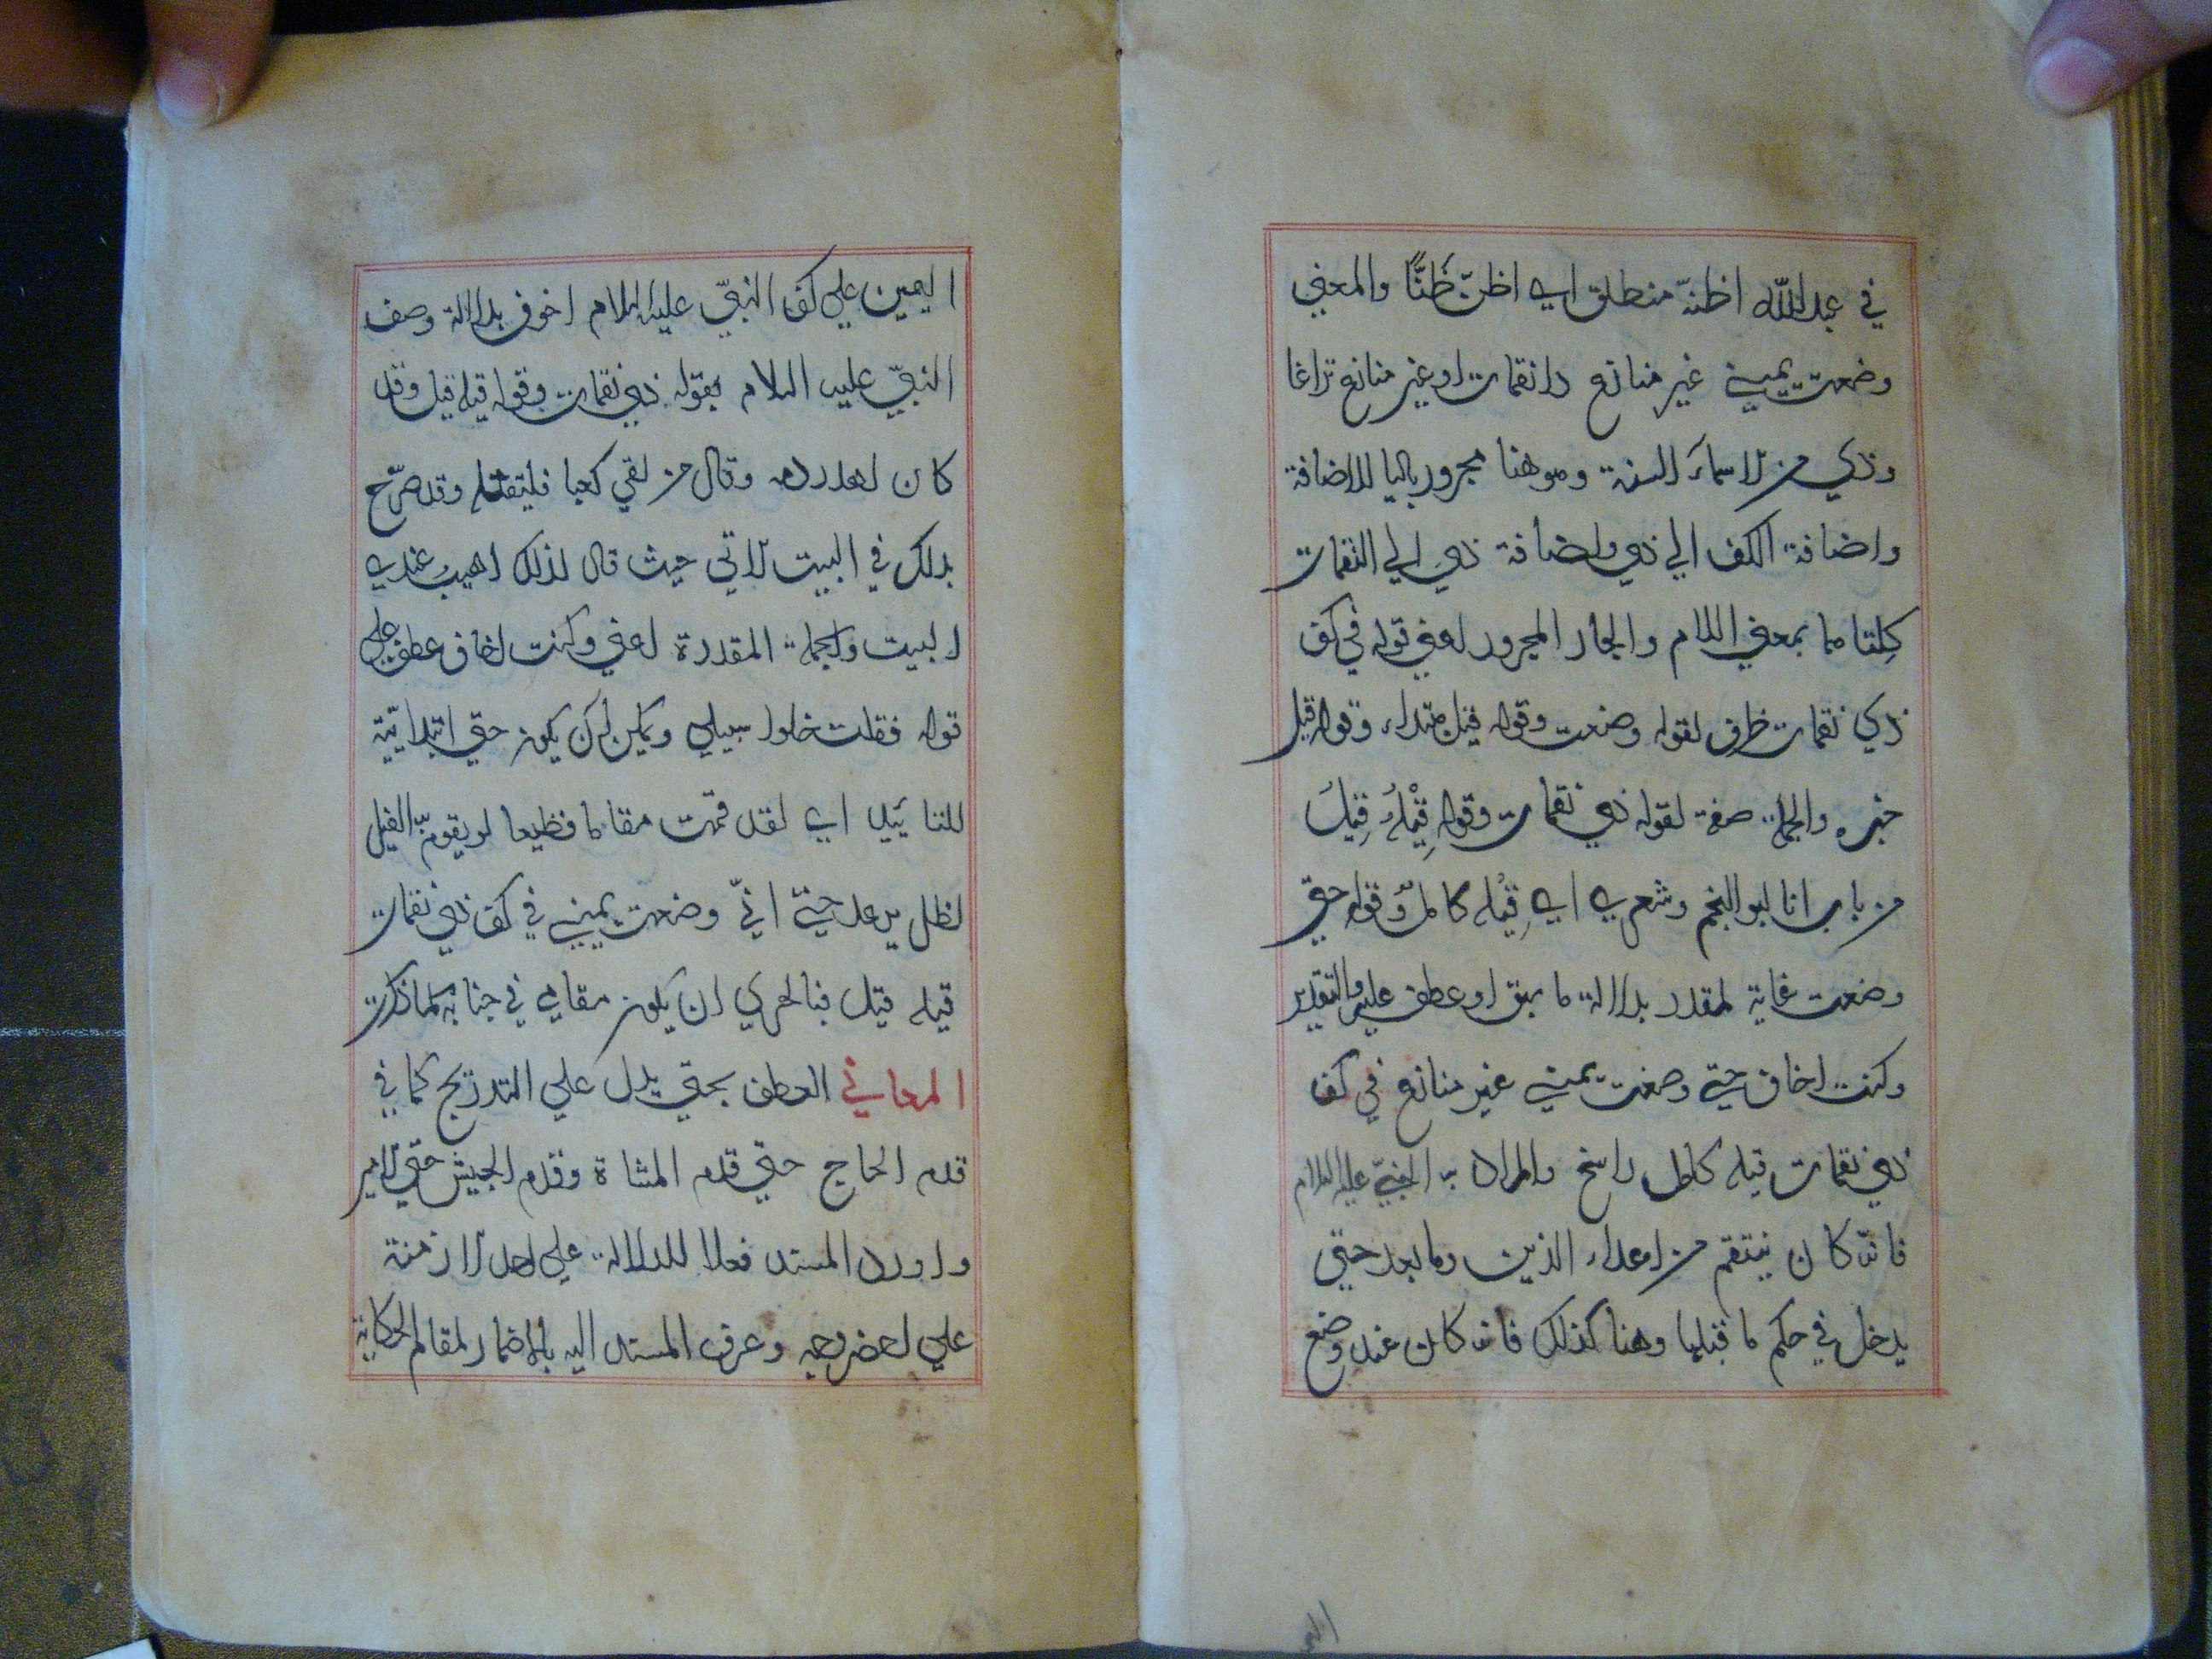 في عبد الله اظنّه منطلق اي اظنّ ظَنًّا والمعني
وضعت يميني غير منازع ذا نقمات او غير منازع نزاعا
وذي من الاسماء الستة وهو هنا مجرور باليا للاضافة
واضافة الكف الي ذي واضافة ذي الي النقمات
كِلتاهما بمعني اللام والجار المجرور اعني قوله في كف
ذي نقمات ظرف لقوله وضعت وقوله قيل مبتداء وقوله قيل
خبره والجملة صفة لقوله ذي نقمات وقوله قِيْلُهُ قِيلُ
من باب انا ابو النجم وشعري اي قِيْله كامل وقوله حتي
وضعت غاية لمقدر بدلالة ما سبق او عطف عليه والتقدير
وكنت اخاف حتي وضعت يميني غير منازع في كف
ذي نقمات قيله كامل راسخ والمراد به النبيّ عليه السلام
فانّه كان ينتقم من اعداء الدين وما بعد حتي
يدخل في حكم ما قبلها وهنا كذلك فانه كان عند وضع
اليمين علي كف النبيّ عليه السلام اخوف بدلالة وصف
النبيّ عليه السلام بقوله ذي نقمات وقوله قيله قيل وقد
كان اهدر دمه وقال من لقي كعبا فليقتله وقد صرّح
بذلك في البيت الاتي حيث قال لذلك اهيب عندي
البيت والجملة المقدرة اعني وكنت اخاف عطف علي
قوله فقلت خلوا سبيلي ويمكن ان يكون حتي ابتدائيّة
للتائيد اي لقد قمت مقاما فظيعا لو يقوم به الفيل
لظل يرعد حتيّ انّي وضعت يميني في كف ذي نقمات
قيله قيل فبالحري ان يكون مقامي في جنابه كما ذكرت
المعاني العطف بحتي يدل علي التدريج كما في
قدم الحاج حتي قدم المشاة وقدم الجيش حتي الامير
واورد المسند فعلا للدلالة علي احد الازمنة
علي اخصر وجه وعرف المسند اليه بالاضمار لمقام الحكاية